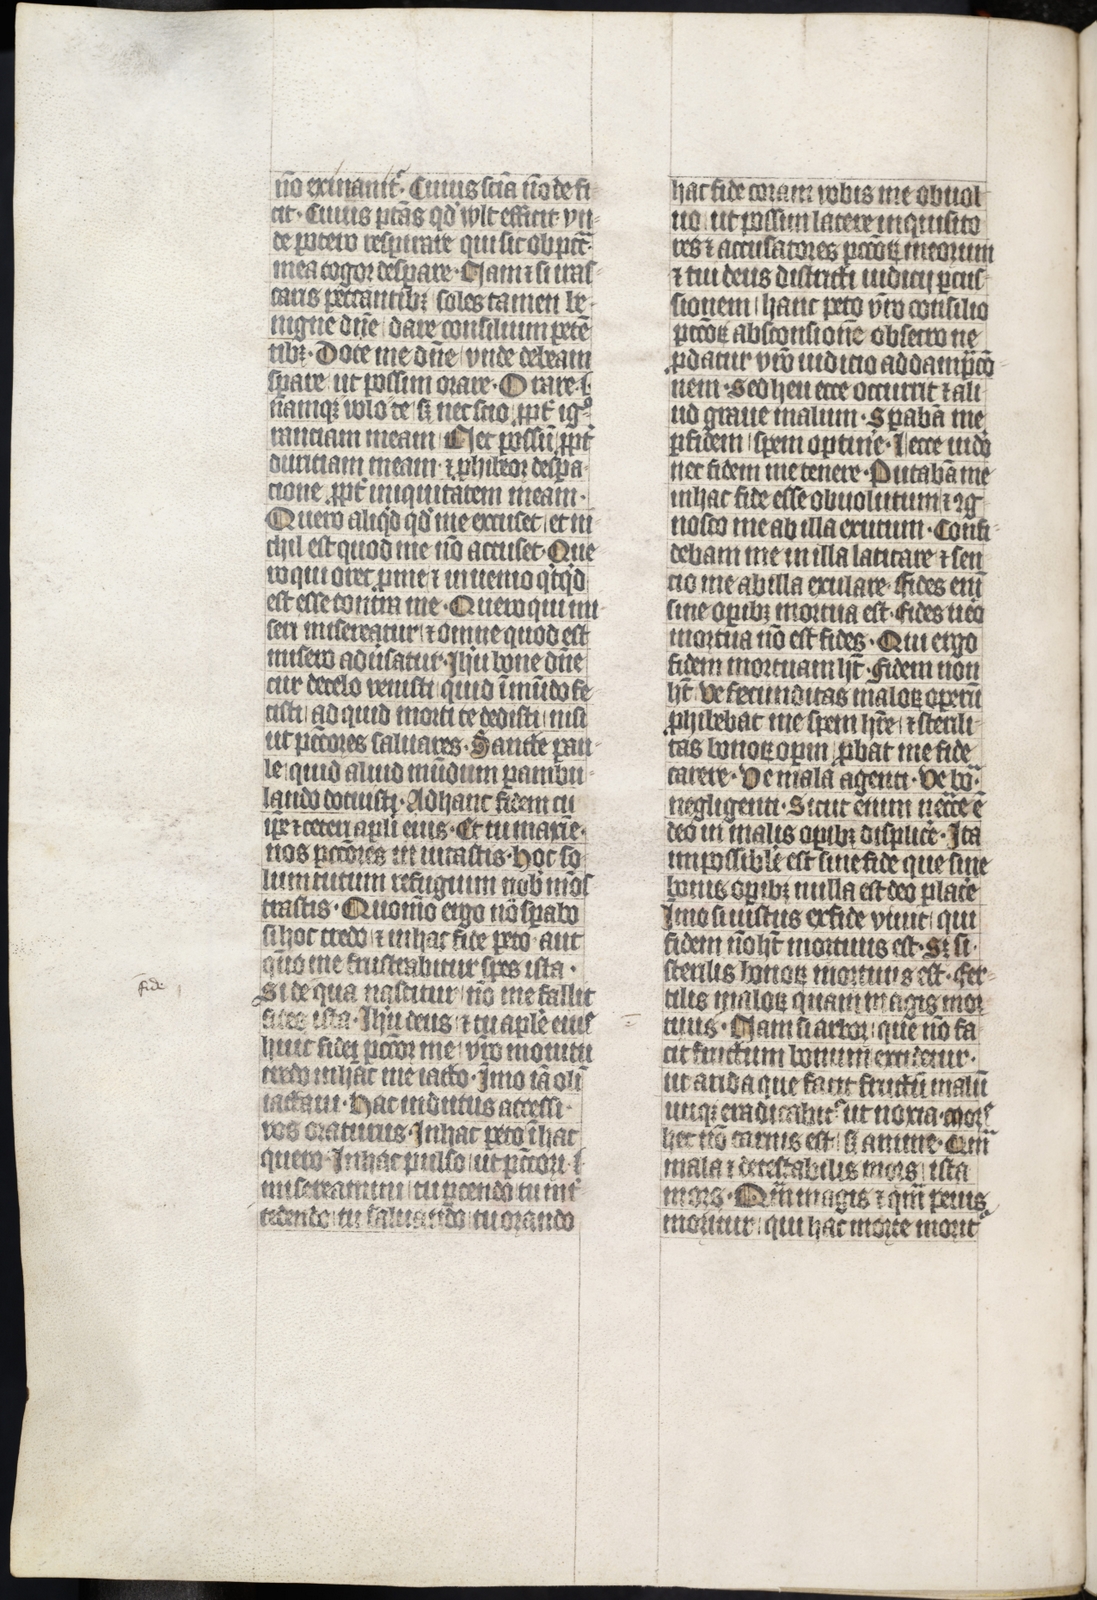 nō exinanit᷑. Cuius sciā nō defi
cit. Cuius ptās qd̕ wlt efficit. vn-
de potero respirare qui sic ob pcc̄-
mea cogor desꝑare. Nam ⁊ si iras-
caris peccantibꝫ soles tamen be-
nigne dn̄e dare consilium petē
tibꝫ. Doce me dn̄e vnde debeam
sꝑare ut possim orare. Orare
namqꝫ wlo te sꝫ nec scio ꝓpt̄ ig̊
ranciam meam Nec possū ꝓpt̄
duriciam meam. ⁊ ꝓhibeor desꝑa
cione ꝓpt̄ iniquitatem meam.
Quero aliq̇d qd̕ me excuset et ni
chil est quod me nō accuset. Que
ro qui oret ꝓ me ⁊ inuenio q̇cq̇d
est esse contra me. Quero qui mi-
seri misereatur ⁊ omne quod est
misero adu̕satur. Jhū bone dn̄e
cur de celo venisti quid ī mūdo fe
cisti ad quid morti te dedisti nisi
ut pcc̄ores saluares. Sancte pau-
le quid aliud mūdum ꝑambu-
lando docuisti. Ad hanc fidem tu
ip̄e ⁊ ceteri apl̄i eius. Et tu maxīe.
nos pcc̄ores inuitastis. Hoc so
lum tutum refugium nob̕ mōs
trastis. Quomō ergo nō sꝑabo
si hoc credo ⁊ in hac fide peto aut
quō me frustrabitur spes ista.
Si de qua nascitur nō me fallit
fides ista. Jhū deus ⁊ tu apl̄e eius
huic fidei pcc̄or me vr̄o monitu
credo in hac me iacto. Jmo iā oli
iactaui. Hac indutus accessi.
vos oraturus. Jn hac peto ī hac
quero. Jn hac pulso ut pcc̄ori
misereamini tu ꝑcendo tu mit̄
cedendo tu saluando tu orando
fide
hac fide coram vobis me obuol
uo ut possim latere inquisito
res ⁊ accusatores pcc̄oꝝ meorum
⁊ tui deus districti iudicij ꝑcus-
sionem hanc peto vr̄o consilio
pcc̄oꝝ absconsionē obsecro ne
ꝓdatur vr̄o iudicio ad dampn̄co
nem. Sed heu ecce occurrit ⁊ ali
ud graue malum. Sꝑabā me
ꝑ fidem spem optin̕e. ecce uidō
nec fidem me tenere. Putabā me
in hac fide esse obuolutum ⁊ ꝯg
nosco me ab illa exutum. Confi-
debam me in illa latitare ⁊ sen
cio me ab illa exulare. Fides enī
sine oꝑibꝫ mortua est. Fides uēo
mortua nō est fides. Qui ergo
fidem mortuam ht̄. Fidem non
ht̄ Ve fecunditas maloꝝ oꝑerū
ꝓhibebat me spem hr̄e ⁊ sterili-
tas bonoꝝ oꝑm ꝓbat me fide
carere. Ve mala agenti. Ve bō.
negligenti. Sicut enim necc̄e ē
deo in malis oꝑibꝫ displic̕e. Ita
impossible est sine fide que sine
bonis oꝑibꝫ nulla est deo plac̕e
Jmo si iustus ex fide viuit qui
fidem nō ht̄ mortuus est. Sꝫ si.
sterilis bonoꝝ mortuus est. Fer-
tilis maloꝝ quam magis mor
tuus. Nam si arbor que nō fa
cit fructum bonum excidetur.
ut arida que facit fructū malū
utiqꝫ eradicabit᷑ ut noxia. Mors
hec nō carnis est sꝫ anime. Qm̄
mala ⁊ detestabilis mors ista
mors. Qm̄ magis ⁊ qm̄ peius
moritur qui hac morte morit᷑